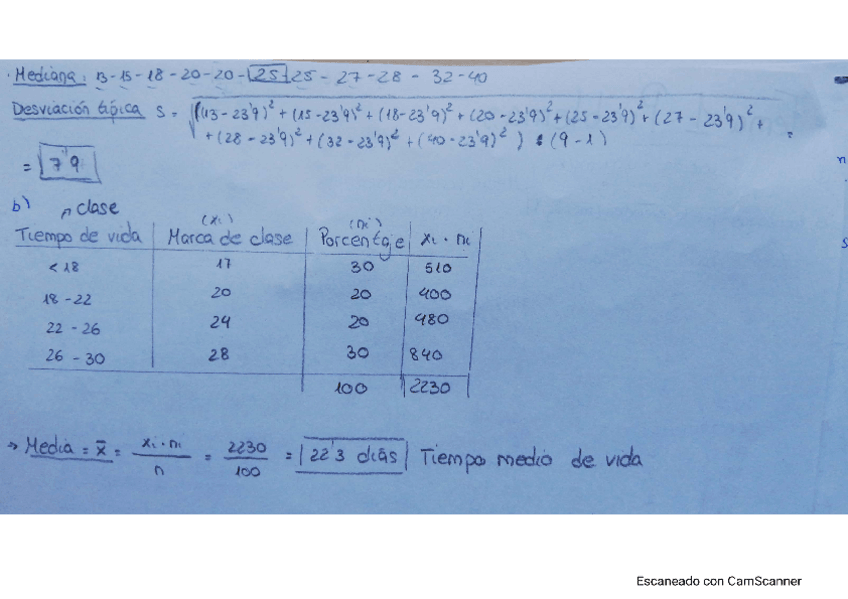 · Mediana: 13-15-18-20-20-25-25-27-28-32-40
Desviación típica S = √((13-23'9)² + (15-23'9)² + (18-23'9)² + (20-23'9)² + (25-23'9)² + (27-23'9)² +
+ (28-23'9)² + (32-23'9)² + (40-23'9)²) : (9-1) =
= 7'9
b)
clase (xi) (ni)
Tiempo de vida Marca de clase Porcentaje xi · ni
<18 17 30 510
18-22 20 20 400
22-26 24 20 480
26-30 28 30 840
100 2230
→ Media = x̄ = xi·ni / n = 2230 / 100 = 22'3 días Tiempo medio de vida
n
s
Escaneado con CamScanner